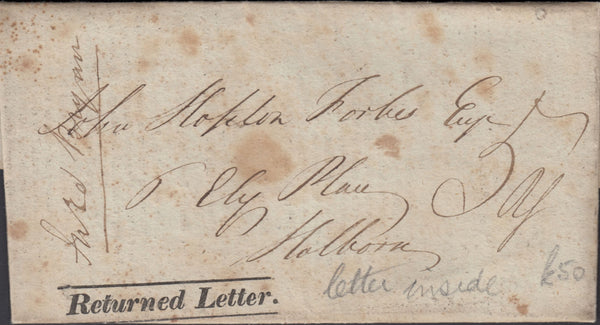 John Hopton Forbes Esqr
6 Ely Place
Holborn
Returned Letter.
letter inside £50